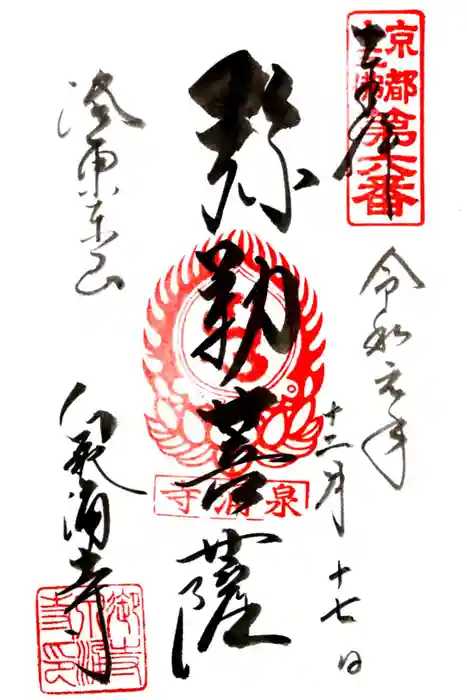 奉拝
京都十三佛第六番
令和元年
十二月十七日
弥勒菩薩
泉涌寺
洛東東山
泉涌寺
御寺泉涌寺印